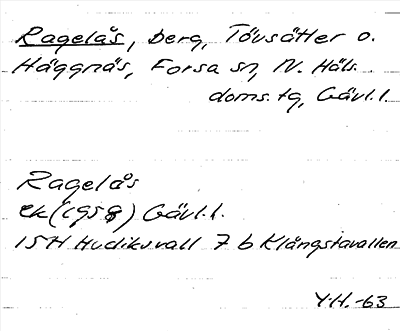 Ragelås, berg, Tövsätter o.
Häggnäs, Forsa sn, N. Häls.
doms. tg, Gävl.l.
Ragelås
ek (1958) Gävl.l.
15H Hudiksvall 7 b Klångstavallen
Y.H. -63